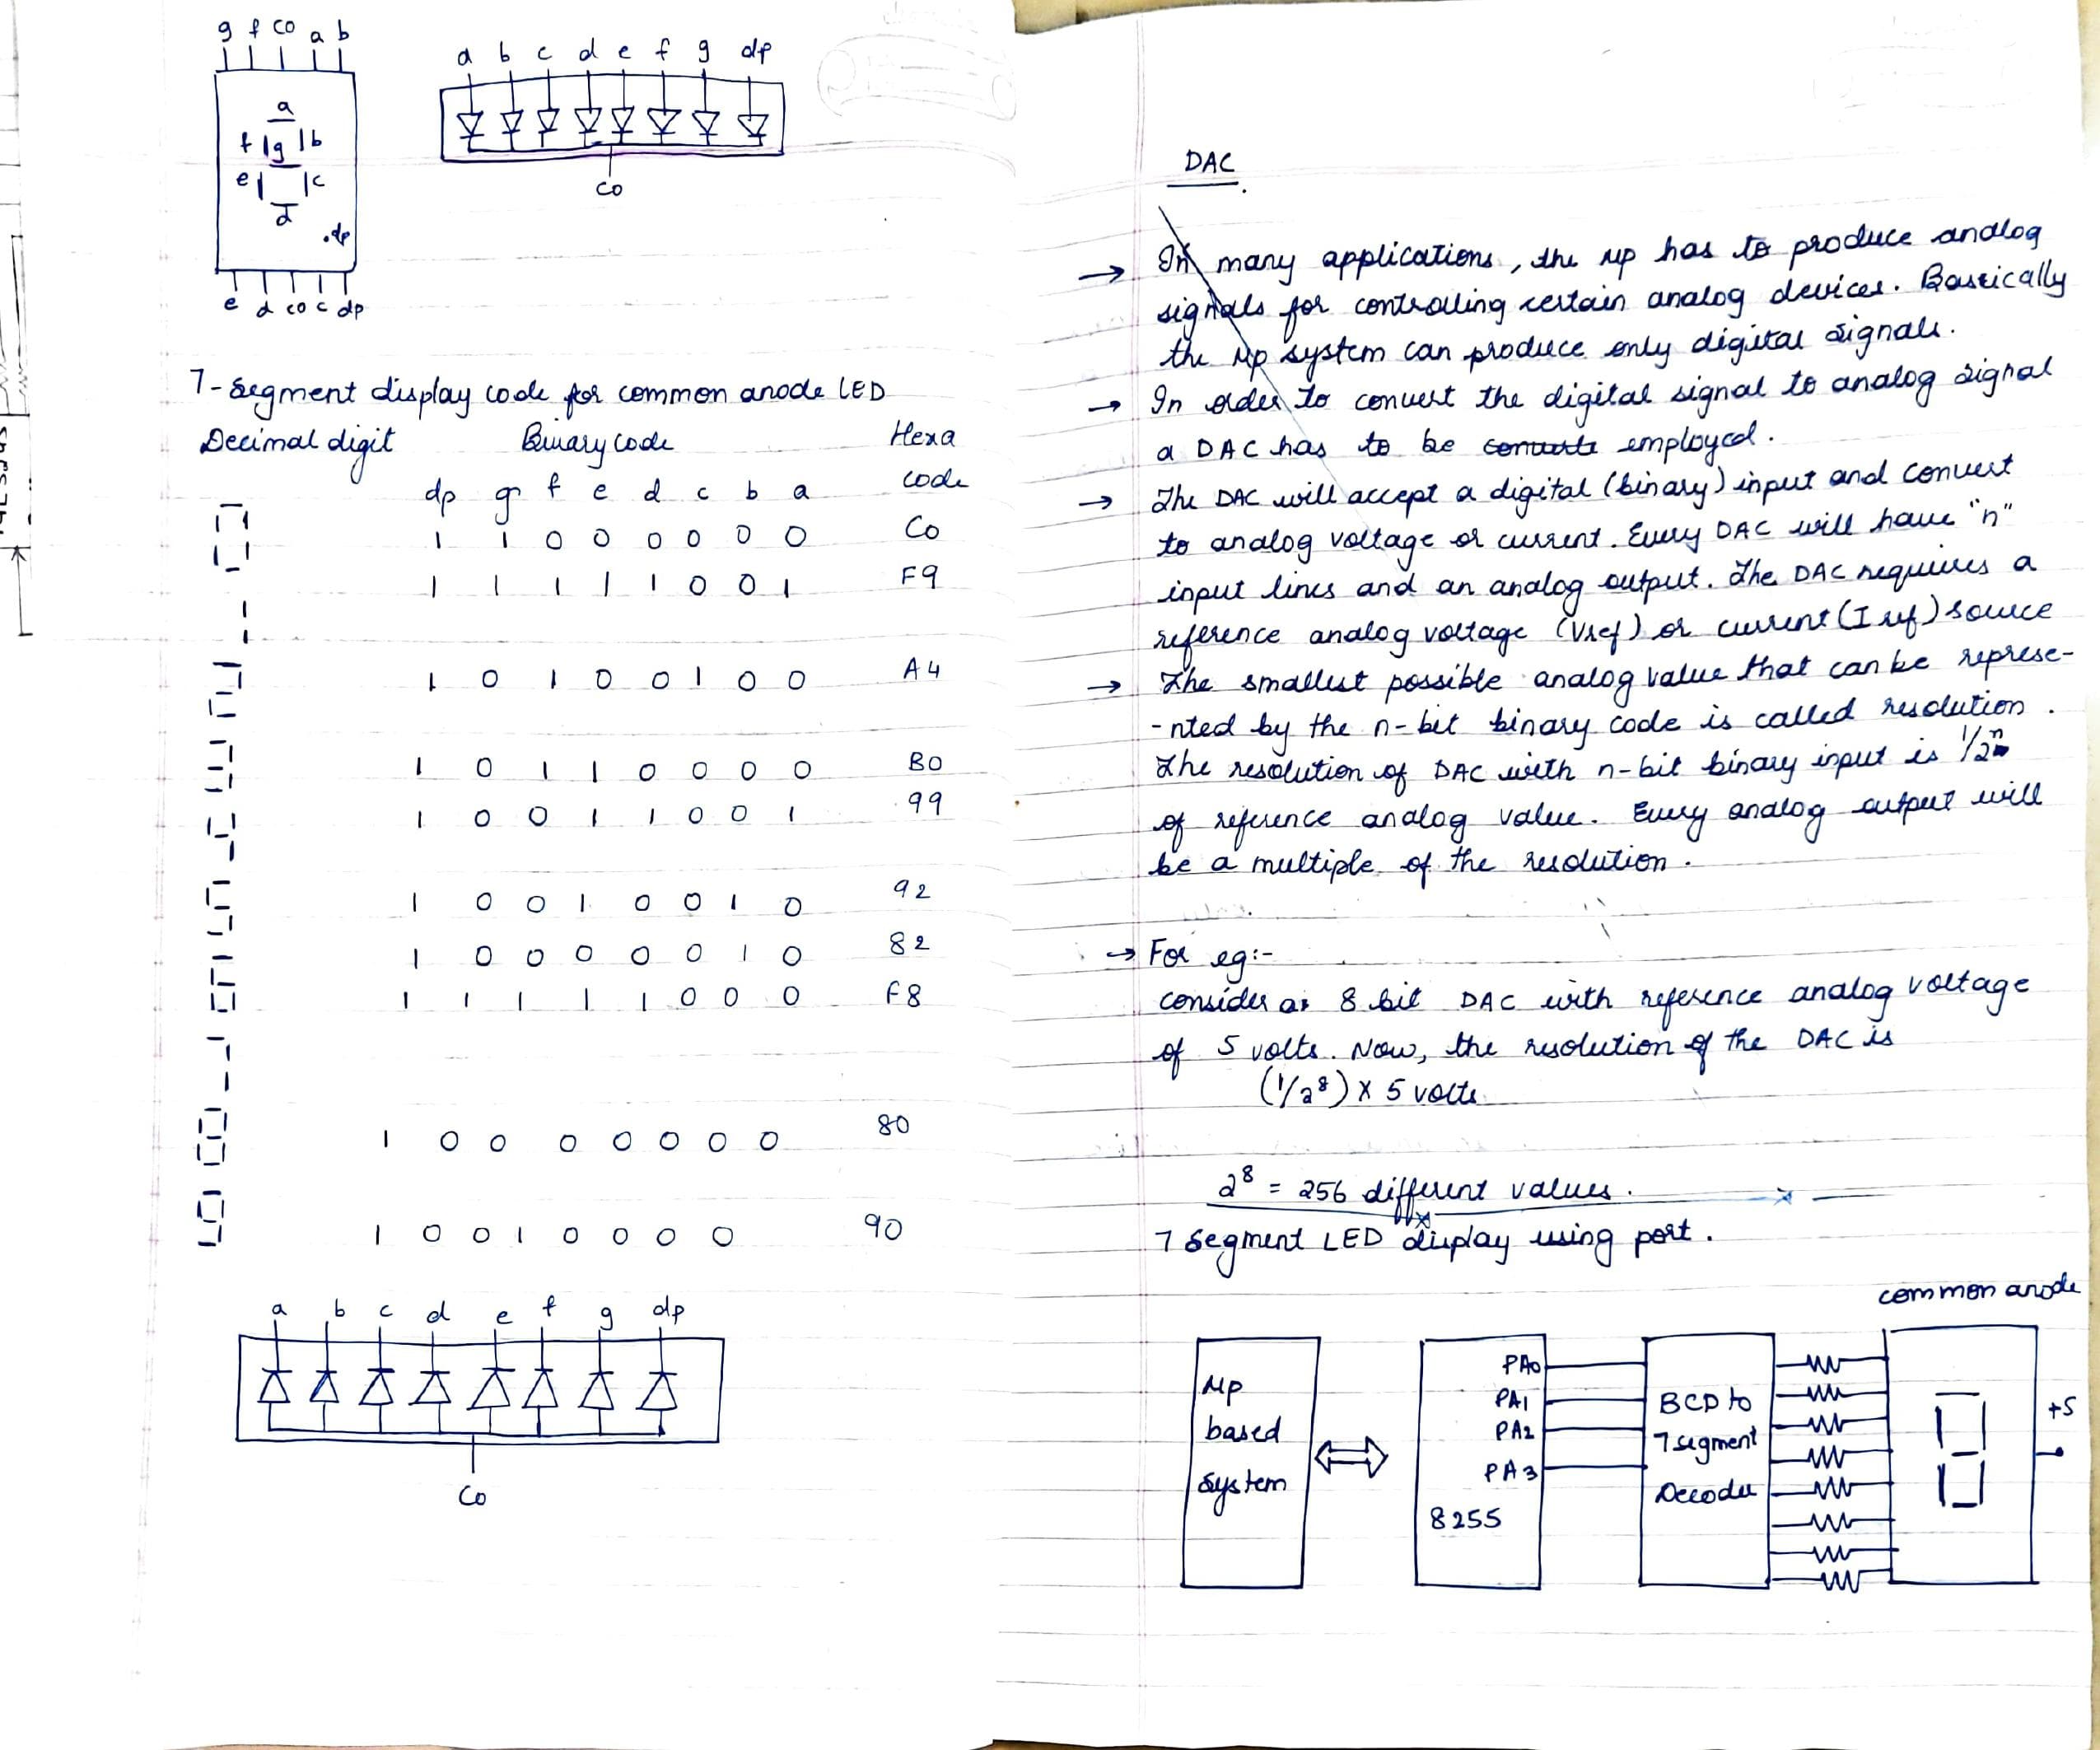 g f co a b
a
f g b
e c
d
.dp
e d co c dp
a b c d e f g dp
co
7-segment display code for common anode LED
Decimal digit Binary code Hexa
code
dp g f e d c b a
0 1 1 0 0 0 0 0 0 C0
1 1 1 1 1 1 0 0 1 F9
2 1 0 1 0 0 1 0 0 A4
3 1 0 1 1 0 0 0 0 B0
4 1 0 0 1 1 0 0 1 99
5 1 0 0 1 0 0 1 0 92
6 1 0 0 0 0 0 1 0 82
7 1 1 1 1 1 0 0 0 F8
8 1 0 0 0 0 0 0 0 80
9 1 0 0 1 0 0 0 0 90
a b c d e f g dp
co
DAC
→ In many applications, the μp has to produce analog
signals for controlling certain analog devices. Basically
the μp system can produce only digital signals.
→ In order to convert the digital signal to analog signal
a DAC has to be converte employed.
→ The DAC will accept a digital (binary) input and convert
to analog voltage or current. Every DAC will have "n"
input lines and an analog output. The DAC requires a
reference analog voltage (Vref) or current (I ref) source
→ The smallest possible analog value that can be represe-
-nted by the n-bit binary code is called resolution.
The resolution of DAC with n-bit binary input is 1/2ⁿ
of reference analog value. Every analog output will
be a multiple of the resolution.
→ For eg:-
consider a 8 bit DAC with reference analog voltage
of 5 volts. Now, the resolution of the DAC is
(1/2⁸) x 5 volts
2⁸ = 256 different values.
7 segment LED display using port.
common anode
μp
based
system
PA0
PA1
PA2
PA3
8255
BCD to
7 segment
Decoder
+5